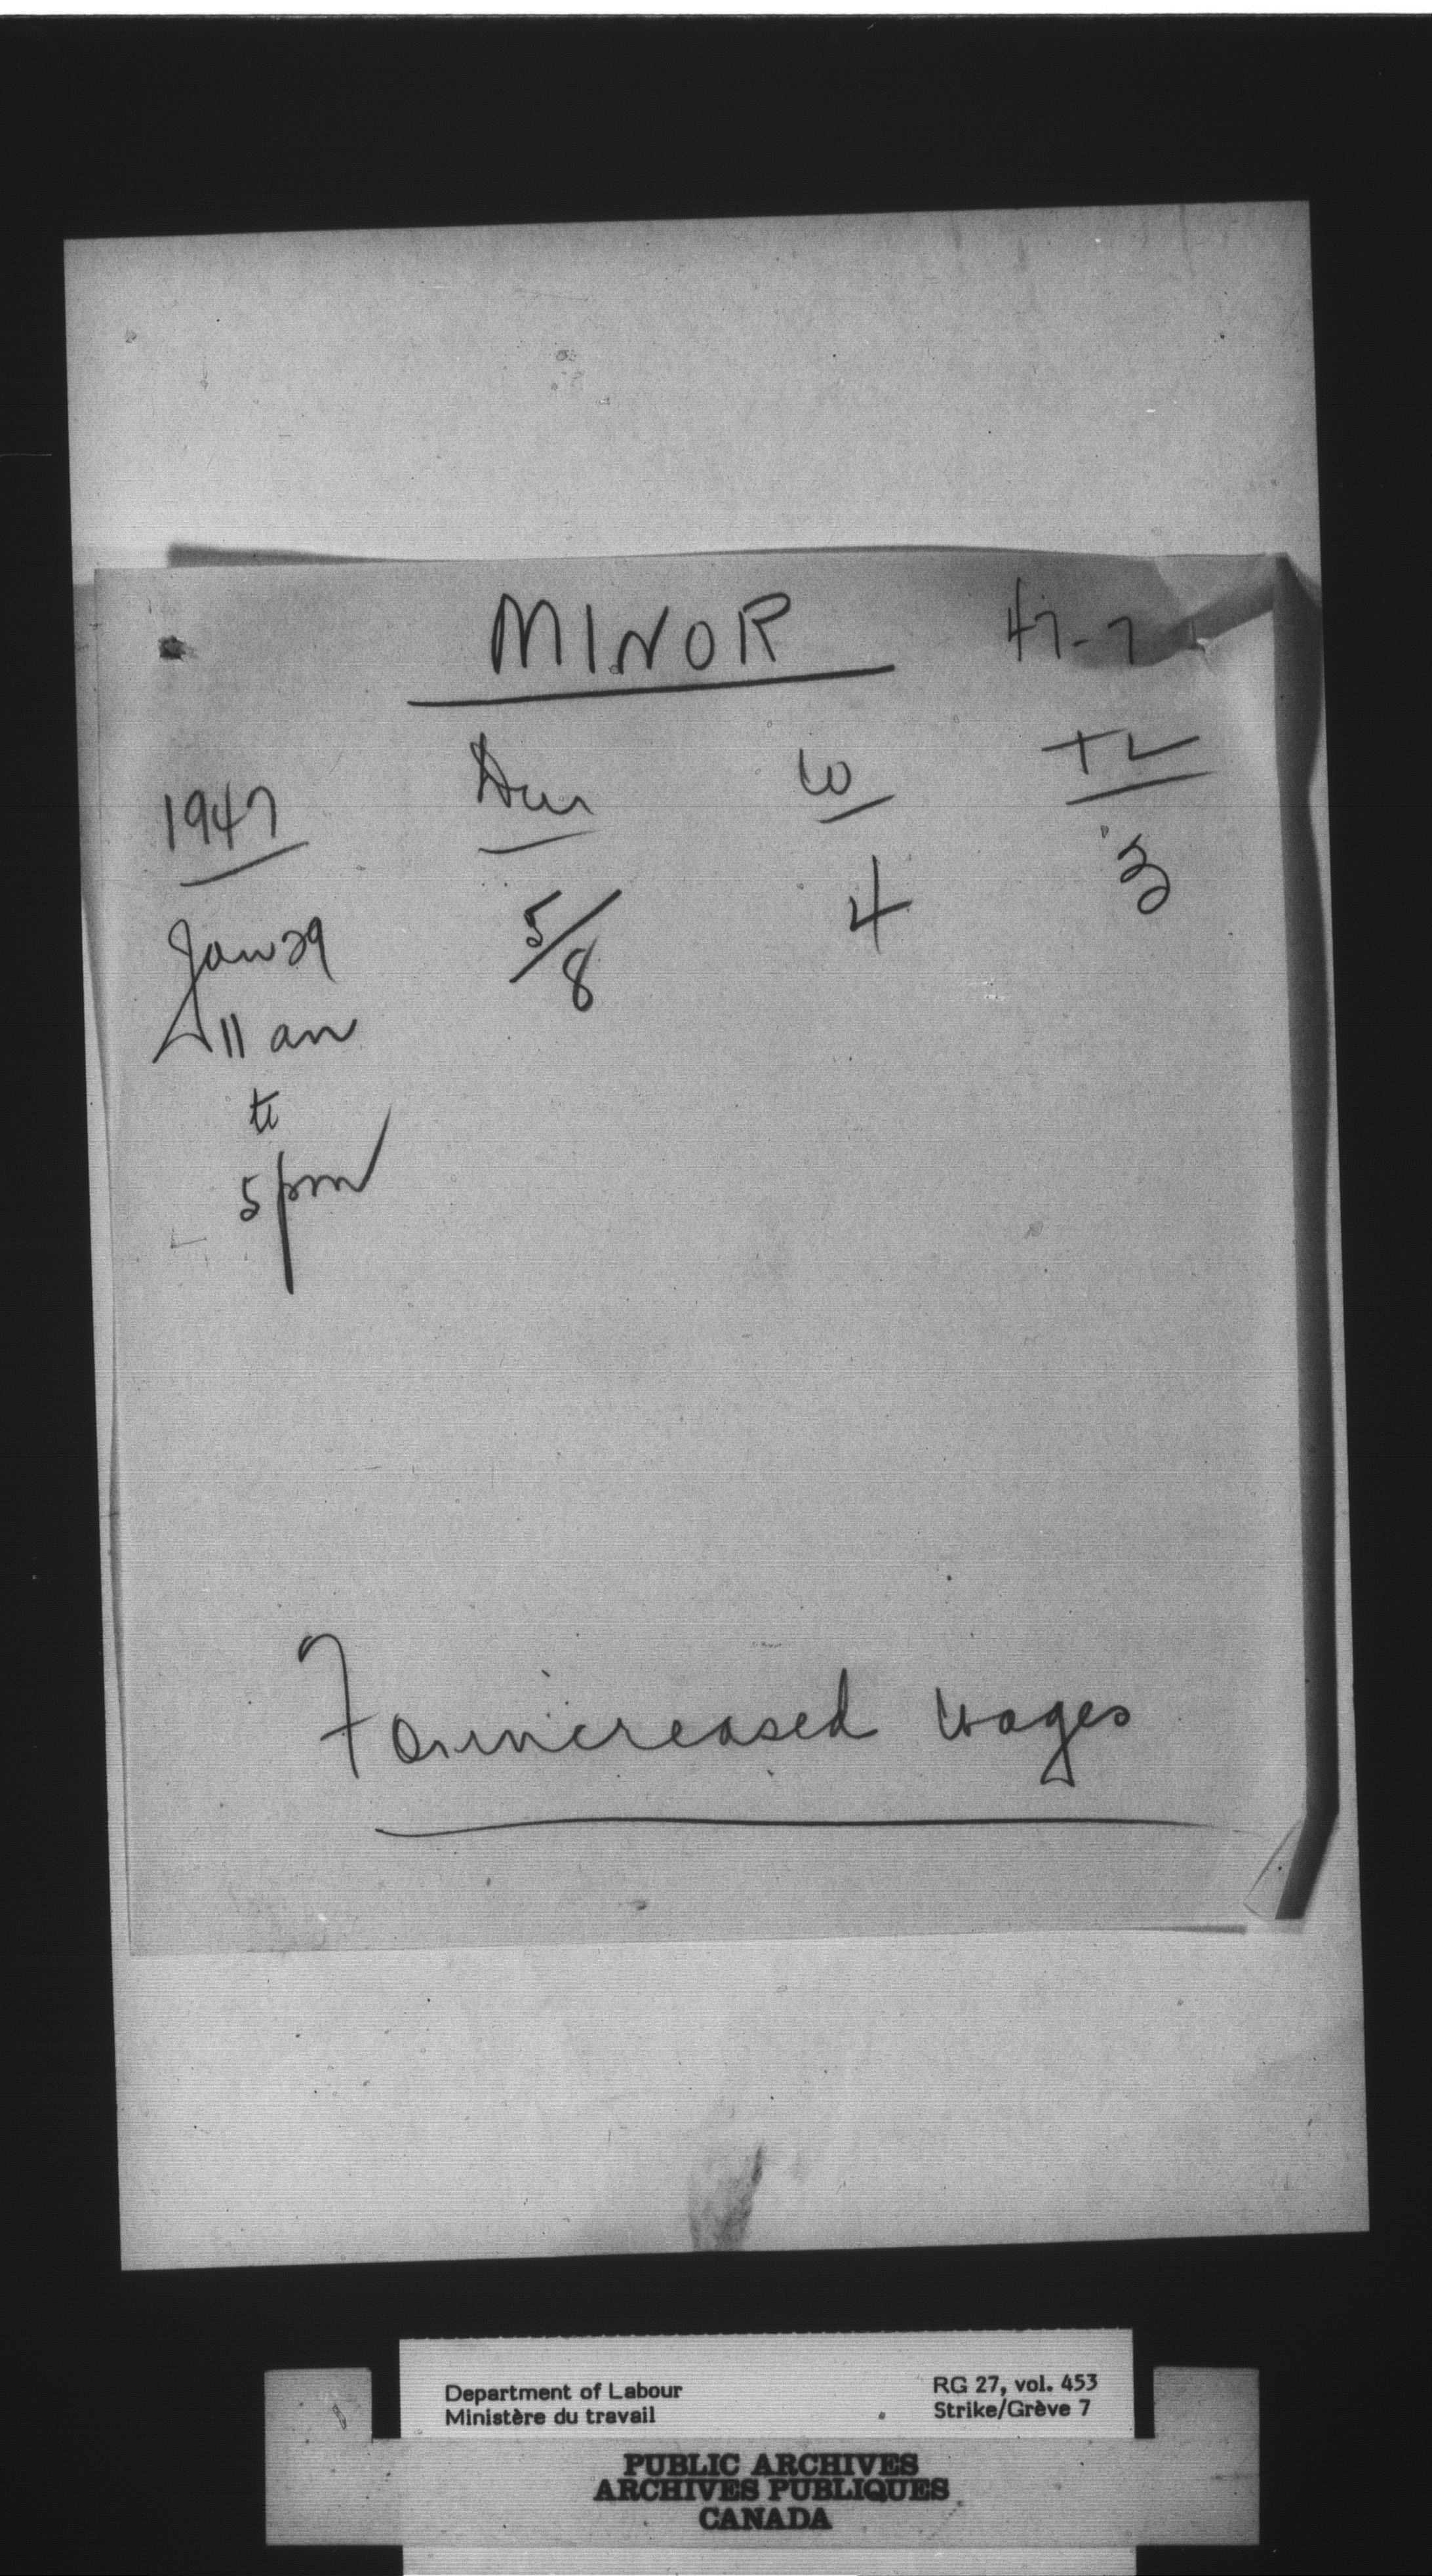 MINOR 47-7
1947 Dur W TL
Jan 29 5/8 4 3
11 am
to
5 pm
For increased wages
Department of Labour
Ministère du travail
RG 27, vol. 453
Strike/Grève 7
PUBLIC ARCHIVES
ARCHIVES PUBLIQUES
CANADA